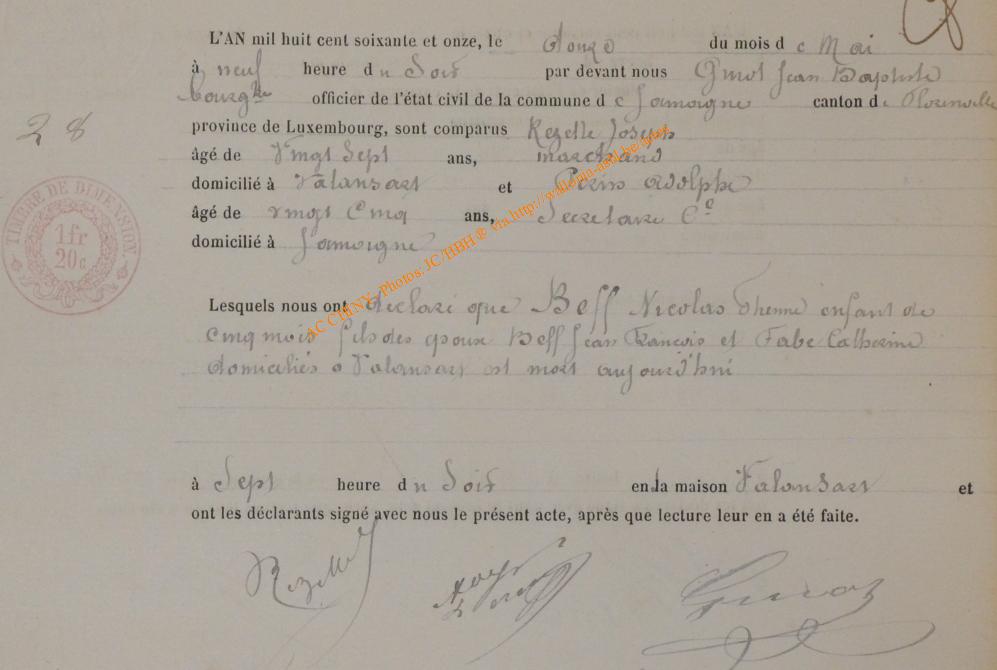 L'AN mil huit cent soixante et onze, le onze du mois d e Mai
à neuf heure d u Soir par devant nous Jean Baptiste
bourgtre officier de l'état civil de la commune d e Jamoigne canton d e Florenville
province de Luxembourg, sont comparus Rezette Joseph
âgé de Vingt Sept ans, marchand
domicilié à Valansart et Perin Adolphe
âgé de vingt Cinq ans, Secretaire Cl
domicilié à Jamoigne
28
TIMBRE DE DIMENSION.
1fr
20c
Lesquels nous ont déclaré que Beff Nicolas enfant de
cinq mois fils des epoux Beff Jean Francois et Fabe Catherine
domiciliés a Valansart est mort aujourd'hui
à Sept heure d u Soir en la maison Valansart et
ont les déclarants signé avec nous le présent acte, après que lecture leur en a été faite.
Rezette
AC CHINY - Photos: JC/HBH ® via http://wallonia-asbl.be/inter